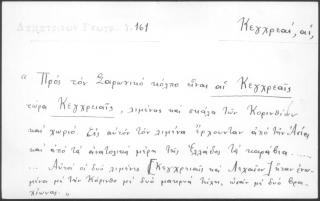 Δημητρίου Γεωγρ. 1.161
Κεγχρεαί, αἱ,
" Πρὸς τὸν Σαρωνικὸ κόρπο εἶναι αἱ Κεγχρεαῖς
τώρα Κεγχρεαῖς, λιμένας καὶ σκάλα τῶν Κορινθίων
καὶ χωριό. Εἰς αὐτὸν τὸν λιμένα ἔρχουνταν ἀπὸ τὴν Ἀσία
καὶ ἀπὸ τὰ ἀνατολικὰ μέρη τῆς Ἑλλάδος τὰ καράβια....
... Αὐτοὶ οἱ δυὸ λιμένες [Κεγχρειαῖς καὶ Λεχαῖον] ἦταν ἑνω-
μένοι μὲ τὴν Κόρινθο μὲ δυὸ μακρυὰ τείχη, ὡσὰν μὲ δυὸ βρα-
χίωνας. "